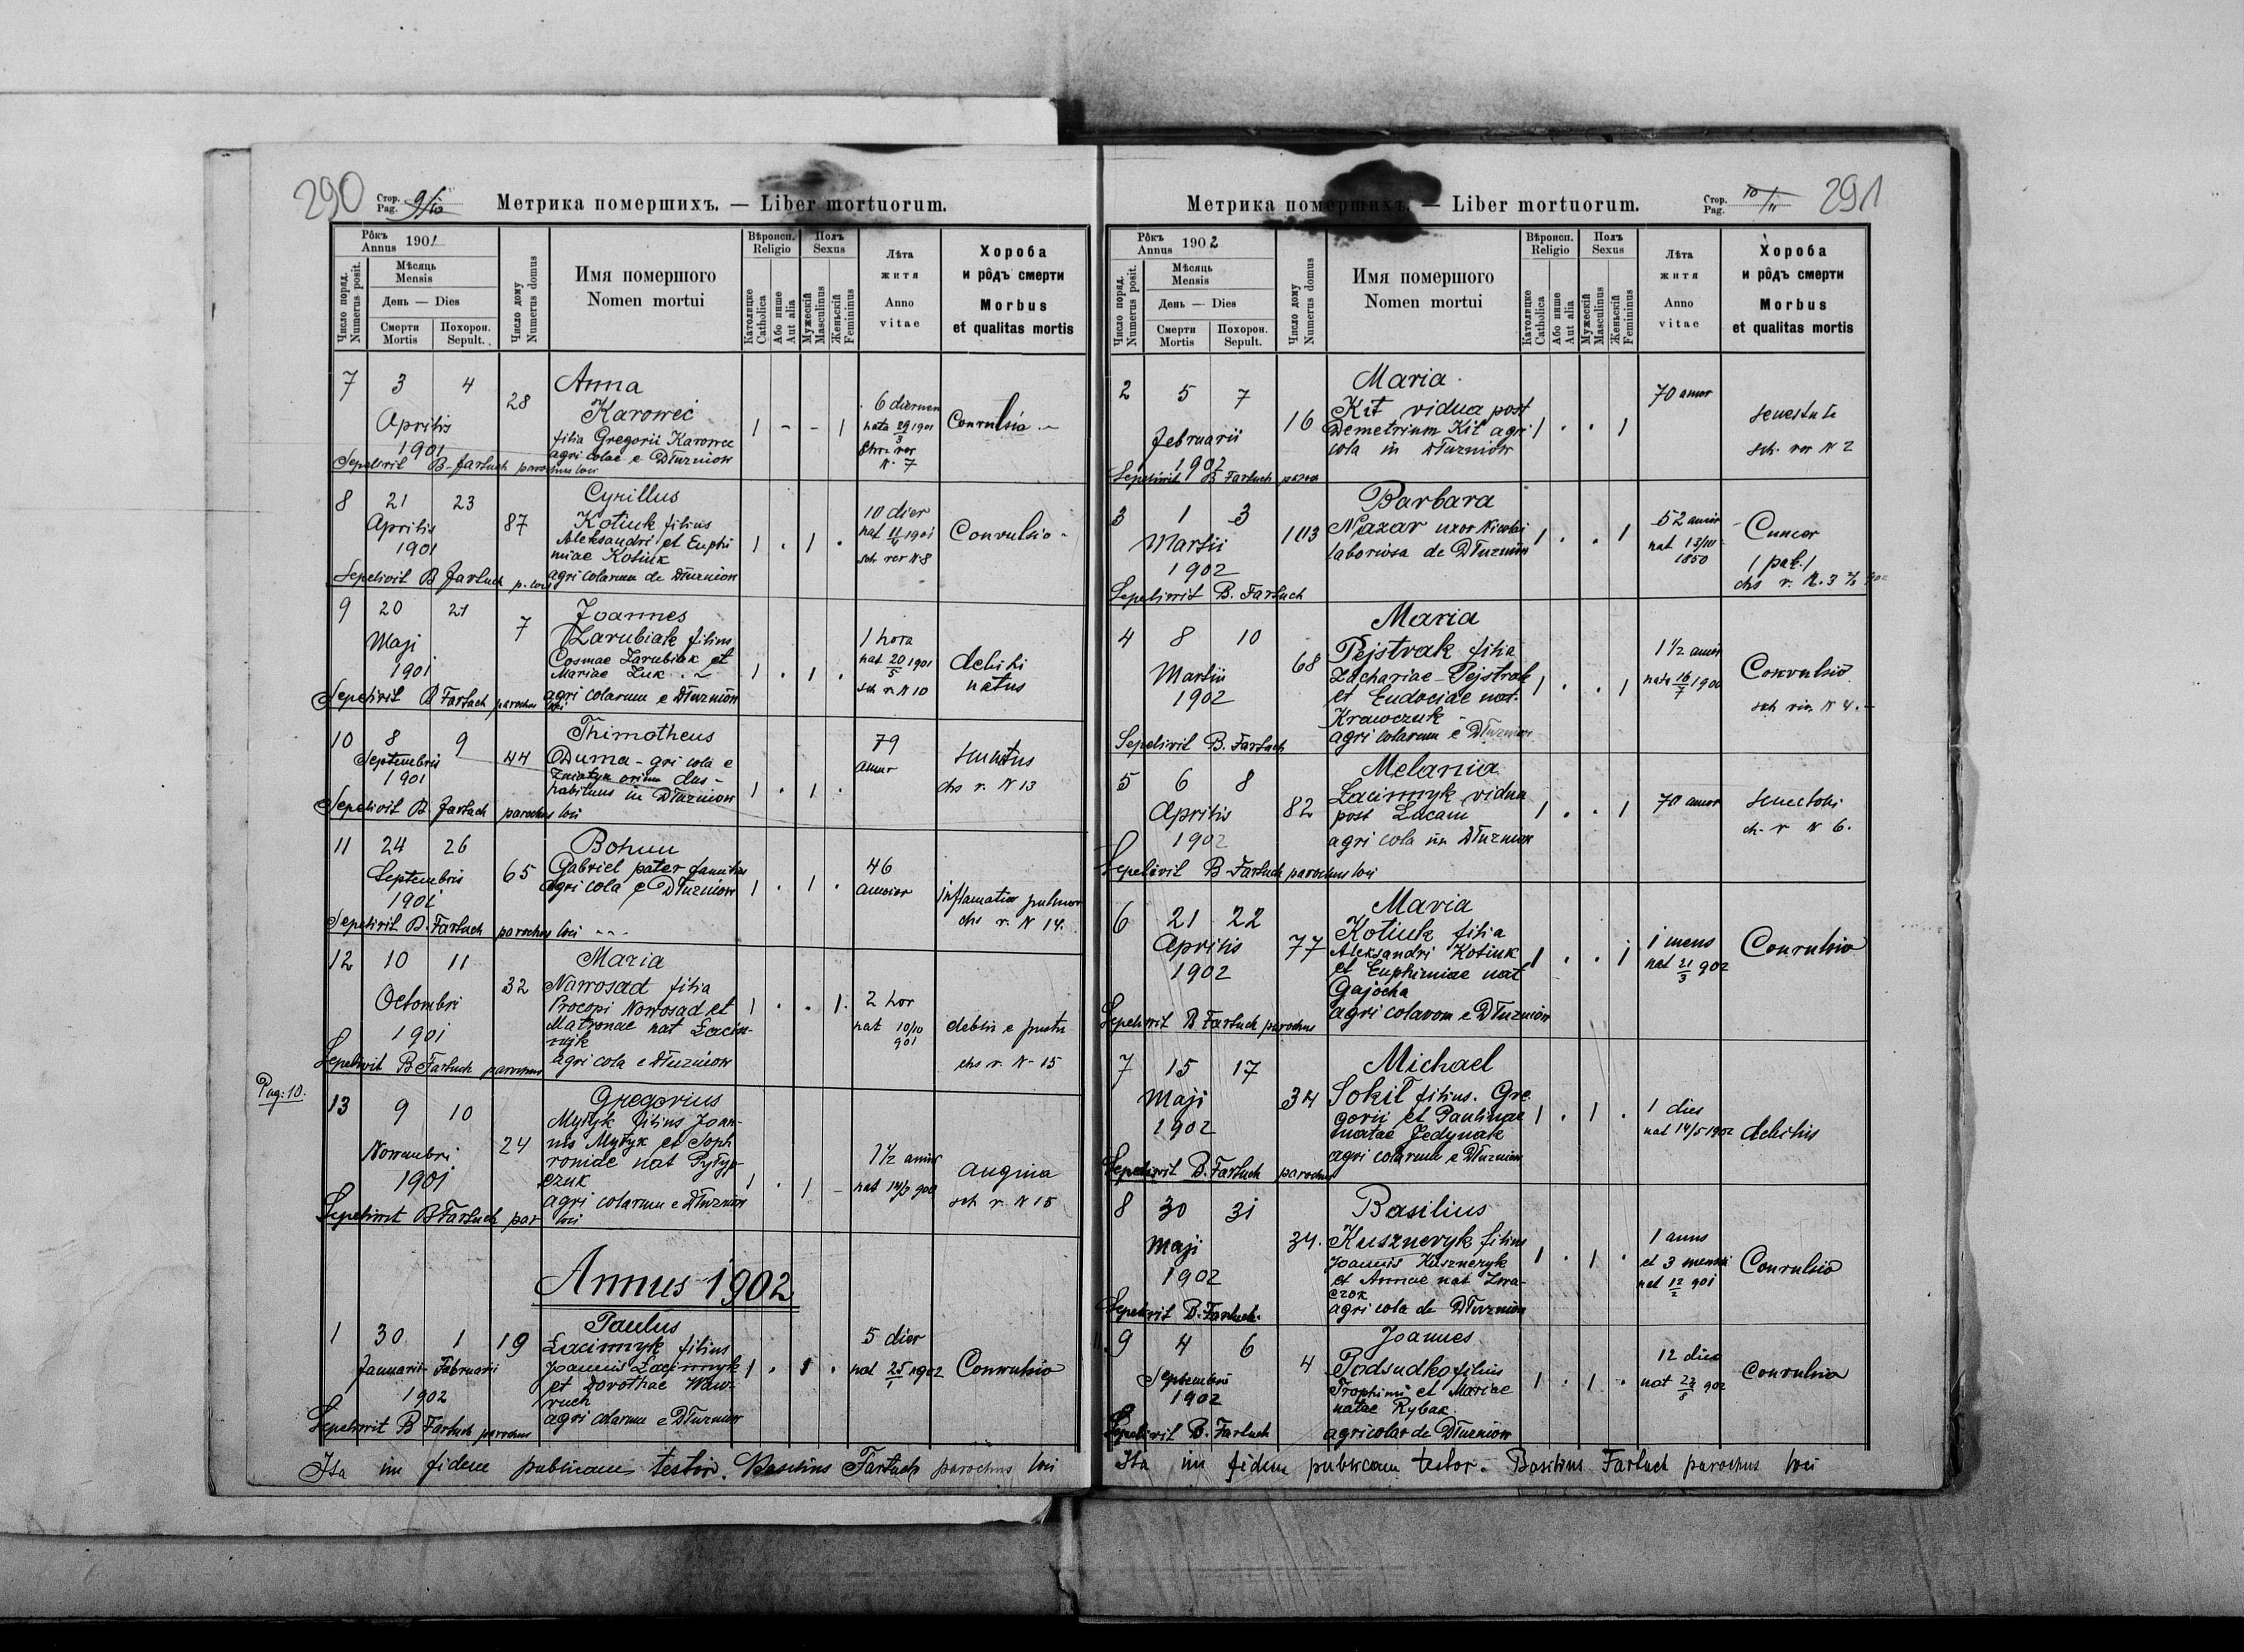 290
Стор. Pag. 9/10
Метрика помершихъ. — Liber mortuorum.
Рôкъ Annus 1901
Число поряд. Numerus posit.
Мѣсяць Mensis
День — Dies
Смерти Mortis
Похорон. Sepult.
Число дому Numerus domus
Имя помершого
Nomen mortui
Вѣроисп. Religio
Католицке Catholica
Або инше Aut alia
Полъ Sexus
Мужескій Masculinus
Женьскій Femininus
Лѣта житя
Anno vitae
Хороба и рôдъ смерти
Morbus et qualitas mortis
7 3 4 28
Aprilis
1901
Anna
Karoweć
filia Gregorii Karowec
agricolae e Dłużniow
1 - - 1
6 dierum
nata 29/3 1901
N. 7
Convulsio
Sepelivit B. Farłuch parochus loci
8 21 23 87
Aprilis
1901
Cyrillus
Kotiuk filius
Aleksandri et Euphi
miae Kotiuk
agricolarum de Dłużniow
1 . 1 .
10 dier
nat 11/4 1901
sch rer N 8
Convulsio
Sepelivit B Farłuch p. loci
9 20 21 7
Maji
1901
Joannes
Zarubiak filius
Cosmae Zarubiak et
Mariae Zuk
agricolarum e Dłużniow
1 . 1 .
1 hora
nat 20/5 1901
sch r. N 10
debili
natus
Sepelivit B Farłuch parochus loci
10 8 9 44
Septembris
1901
Thimotheus
Duma - gri cola e
habitans in Dłużniow
1 . 1 .
79
annor
chs r. N 13
Sepelivit B. Farłuch parochus loci
11 24 26 65
Septembris
1901
Bohun
Gabriel pater familias
agricola e Dłużniow
1 . 1 .
46
annor
inflamatio pulmor
chs r. N 14.
Sepelivit B. Farłuch parochus loci
12 10 11 32
Octombri
1901
Maria
Nawosad filia
Procopi Nowosad et
Matronae nat Łacim-
nyk
agricola e Dłużniow
1 . . 1.
2 hor
nat 10/10
901
chs r. N 15
Sepelivit B Farłuch parochus
Pag: 10.
13 9 10 24
Nowembri
1901
Gregorius
Myłyk filius Joan-
nis Myłyk et Soph
roniae nat Pyłyp
czuk
agricolarum e Dłużniow
1 . 1 -
1 1/2 annor
angina
sch r. N 15
Sepelivit B Farłuch par loci
Annus 1902
1 30 1 19
Januarii Februarii
1902
Paulus
Łacimnyk filius
Joannis Łacimnyk
et Dorothae Waw-
ruch
agricolarum e Dłużniow
1 . 1 .
5 dier
nat 25/1 1902
Convulsio
Sepelivit B Farłuch parochus
Ita in fidem publicam testor. Basilius Farłuch parochus loci
291
Стор. Pag. 10/11
Метрика помершихъ. — Liber mortuorum.
Рôкъ Annus 1902
Число поряд. Numerus posit.
Мѣсяць Mensis
День — Dies
Смерти Mortis
Похорон. Sepult.
Число дому Numerus domus
Имя помершого
Nomen mortui
Вѣроисп. Religio
Католицке Catholica
Або инше Aut alia
Полъ Sexus
Мужескій Masculinus
Женьскій Femininus
Лѣта житя
Anno vitae
Хороба и рôдъ смерти
Morbus et qualitas mortis
2 5 7 16
februarii
1902
Maria
Kit vidua post
Demetrium Kit agri
cola in Dłużniow
1 . . 1
70 annor
sch. rer N 2
Sepelivit B Farłuch
3 1 3 103
Martii
1902
Barbara
Nazar uxor Nicolai
laboriosa de Dłużniow
1 . . 1
52 annor
nat 13/III
1850
Cancer
Sepelivit B. Farłuch
4 8 10 68
Martii
1902
Maria
Pejstrak filia
Zachariae Pejstrak
et Eudociae nat.
Krawczuk
agricolarum e Dłużniow
1 . . 1
1 1/2 annor
nata 16/7 1900
Convulsio
N 4.
Sepelivit B. Farłuch
5 6 8 82
Aprilis
1902
Melania
Łacimnyk vidua
post Lucam
agricola in Dłużniow
1 . . 1
70 annor
ch. r N 6.
Sepelivit B Farłuch parochus loci
6 21 22 77
Aprilis
1902
Maria
Kotiuk filia
Aleksandri Kotiuk
et Euphimiae nat
Gajocha
agricolarom e Dłużniow
1 . . 1
1 mens
nat 21/3 902
Convulsio
Sepelivit B Farłuch parochus
7 15 17 34
Maji
1902
Michael
Sokil filius. Gre
gorii et Paulinae
natae Jedynak
agricolarum e Dłużniow
1 . 1 .
1 dies
nat 14/5 1902
debilis
Sepelivit B. Farłuch parochus
8 30 31 34.
Maji
1902
Basilius
Kuszneryk filius
Joannis Kuszneryk
et Annae nat Zwa-
czok
agricola de Dłużniow
1 . 1 .
1 anns
et 3 mensi
nat 12/2 901
Convulsio
Sepelivit B. Farłuch.
9 4 6 4
Septembris
1902
Joannes
Podsudko filius
Trophimi et Mariae
natae Rybak
agricolar de Dłużniow
1 . 1 .
12 dies
nat 23/8 902
Convulsio
Sepelivit B. Farłuch
Ita in fidem publicam testor. Basilius Farłuch parochus loci